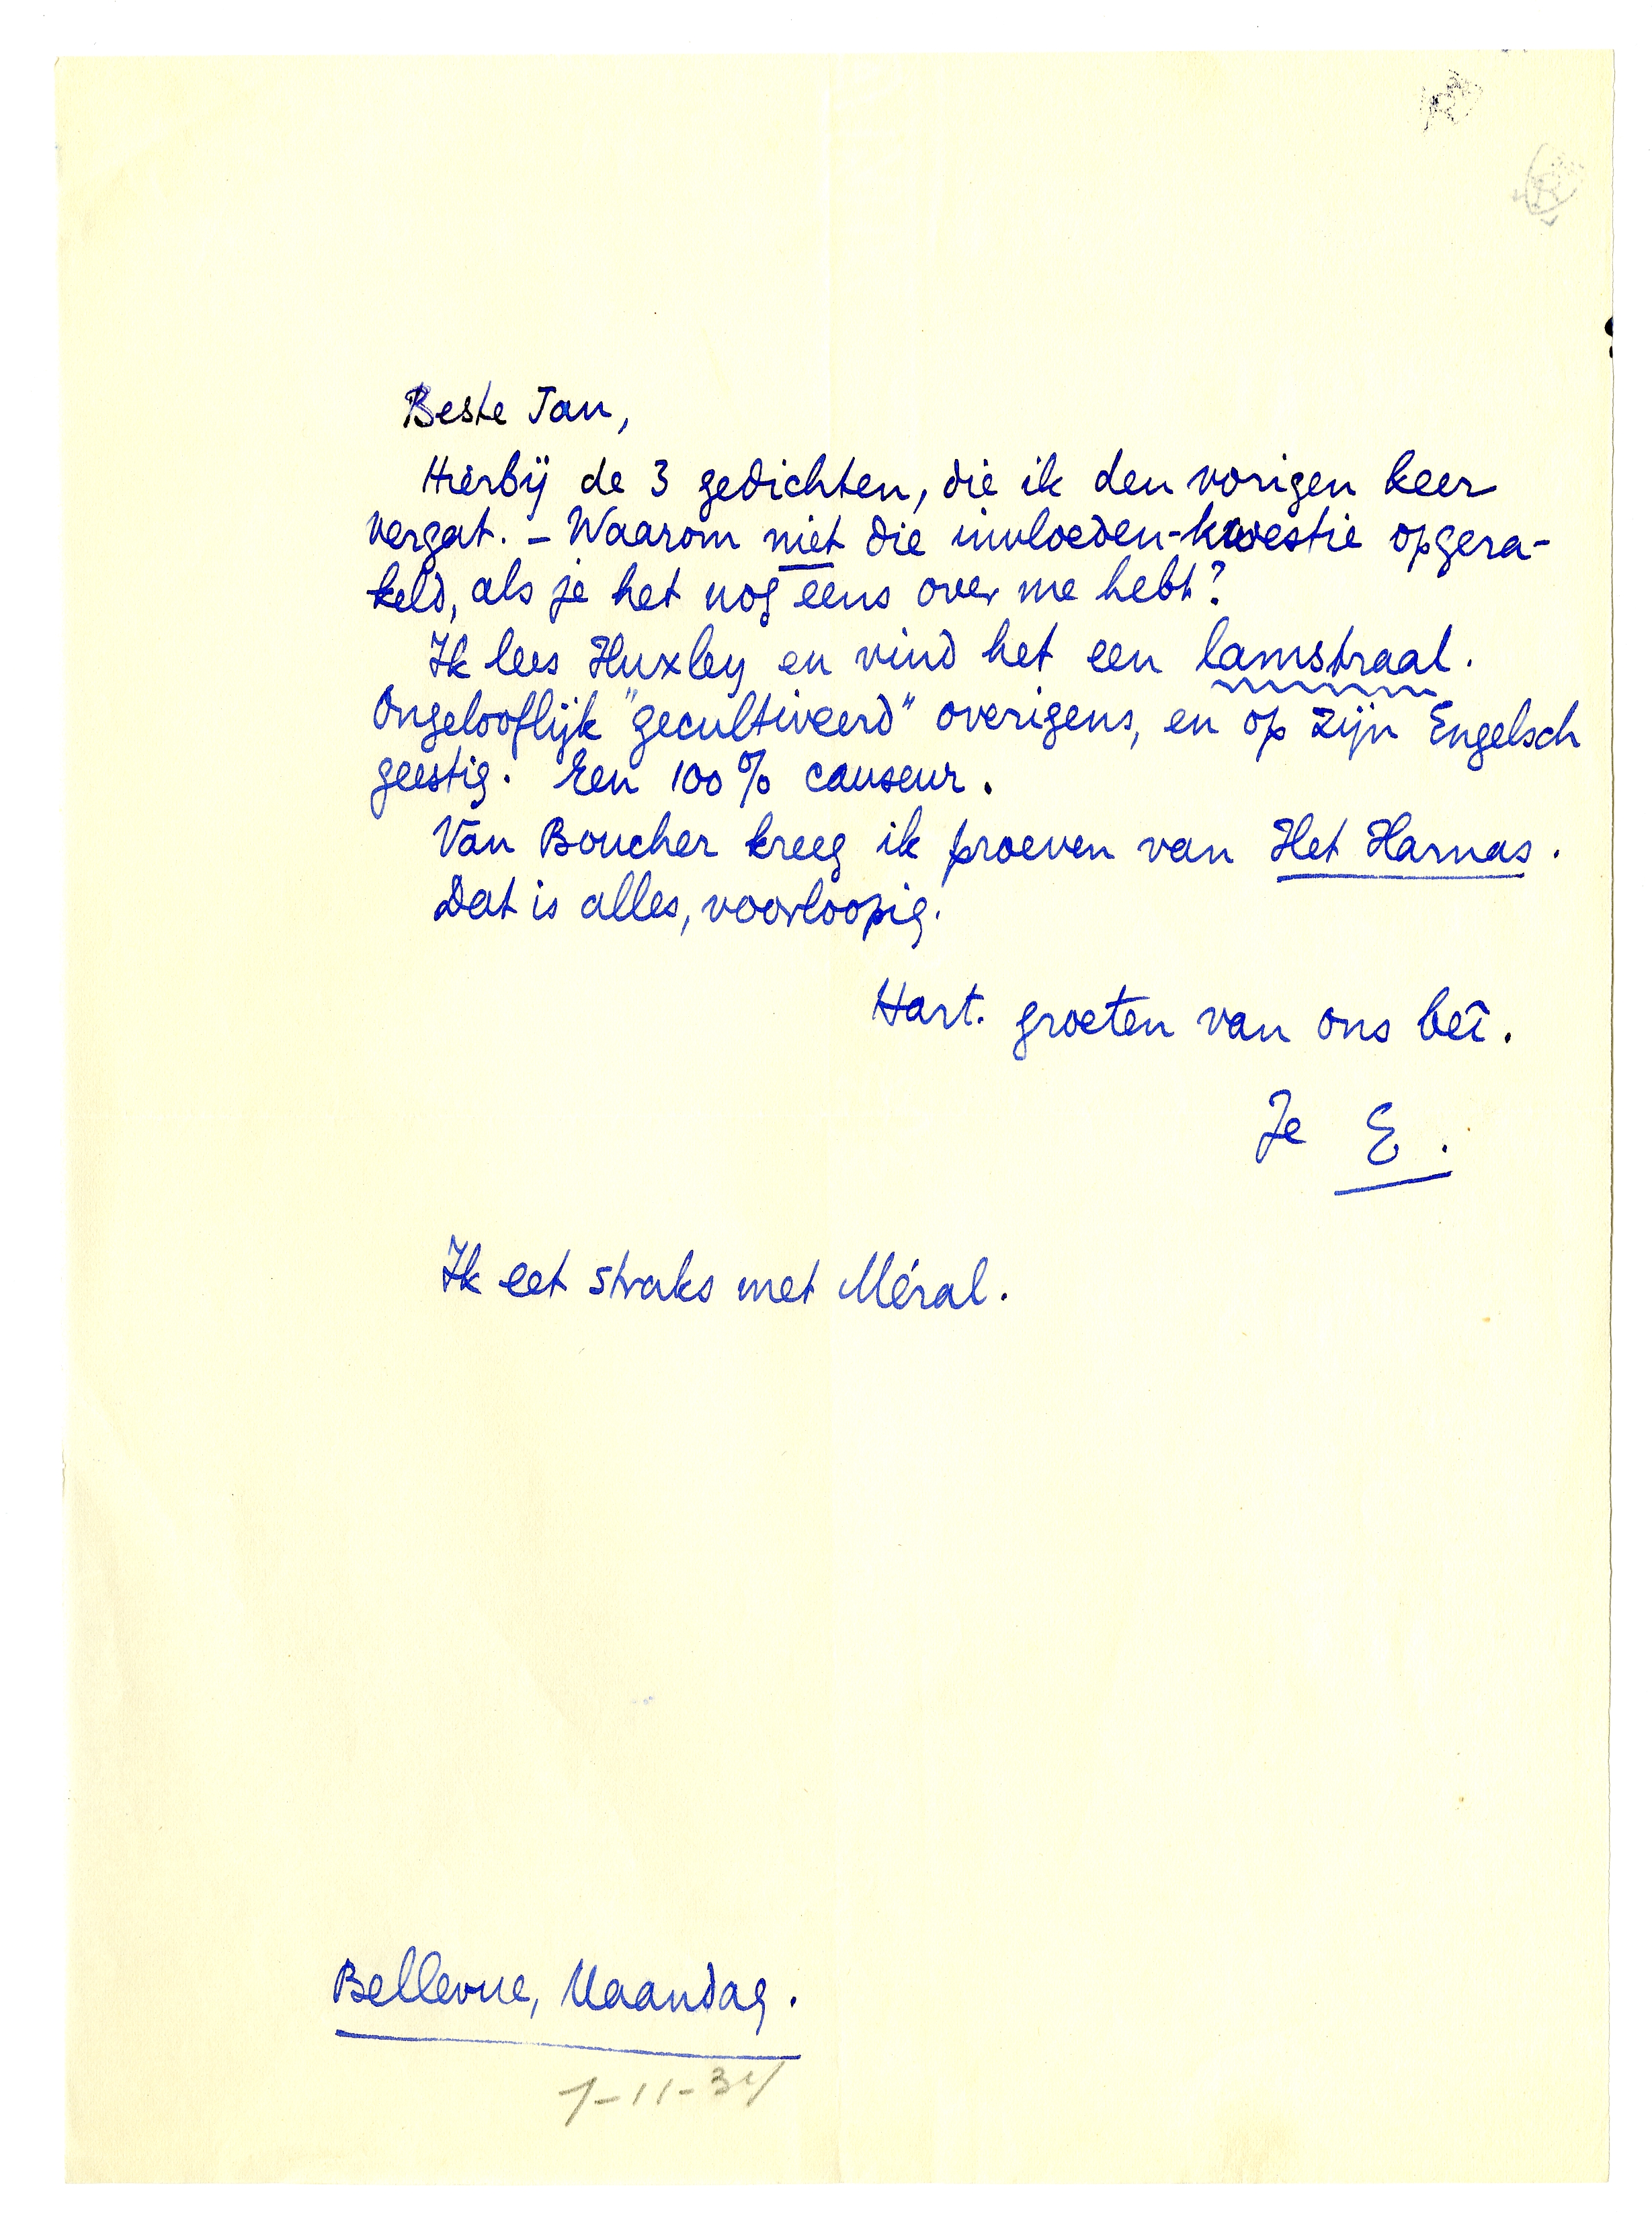 Beste Jan,
Hierbij de 3 gedichten, die ik den vorigen keer
vergat. – Waarom niet die invloeden-kwestie opgera-
keld, als je het nog eens over me hebt?
Ik lees Huxley en vind het een lamstraal.
Ongelooflijk "gecultiveerd" overigens, en op zijn Engelsch
geestig. Een 100% causeur.
Van Boucher kreeg ik proeven van Het Harnas.
Dat is alles, voorloopig.
Hart. groeten van ons bei.
Je E.
Ik eet straks met Méral.
Bellevue, Maandag.